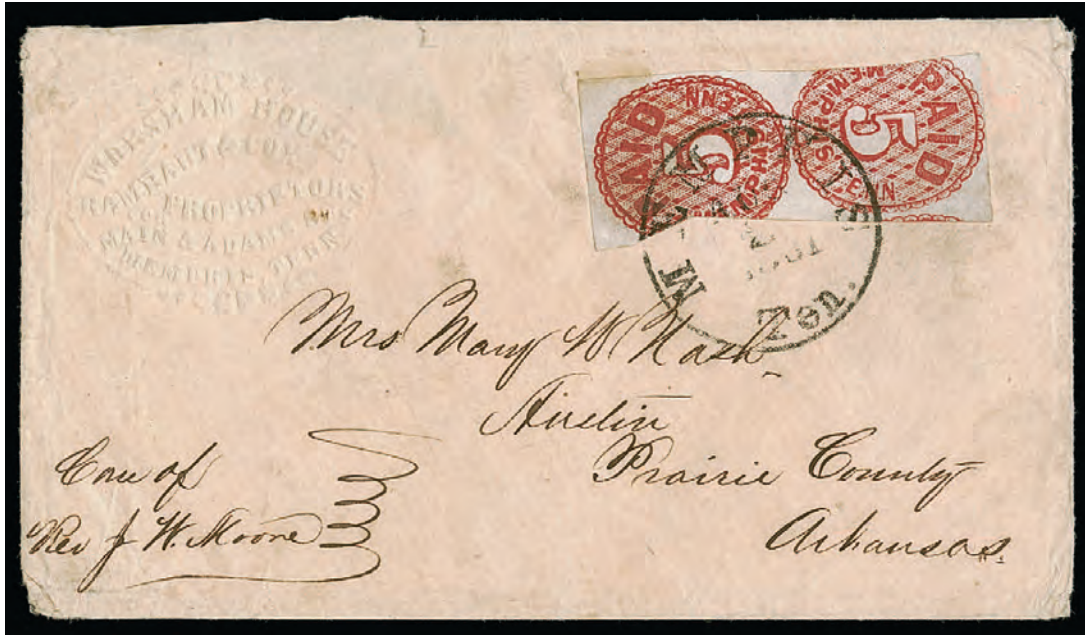 WORSHAM HOUSE
& CO.
PROPRIETORS
COR
MAIN & ADAMS STS
MEMPHIS, TENN.
PAID
5
MEMPHIS
TENN
PAID
5
MEMPHIS
TENN
MEMPHIS
1861
Ten.
Mrs Mary W Nash
Austin
Prairie County
Arkansas.
Care of
Rev J W. Moore